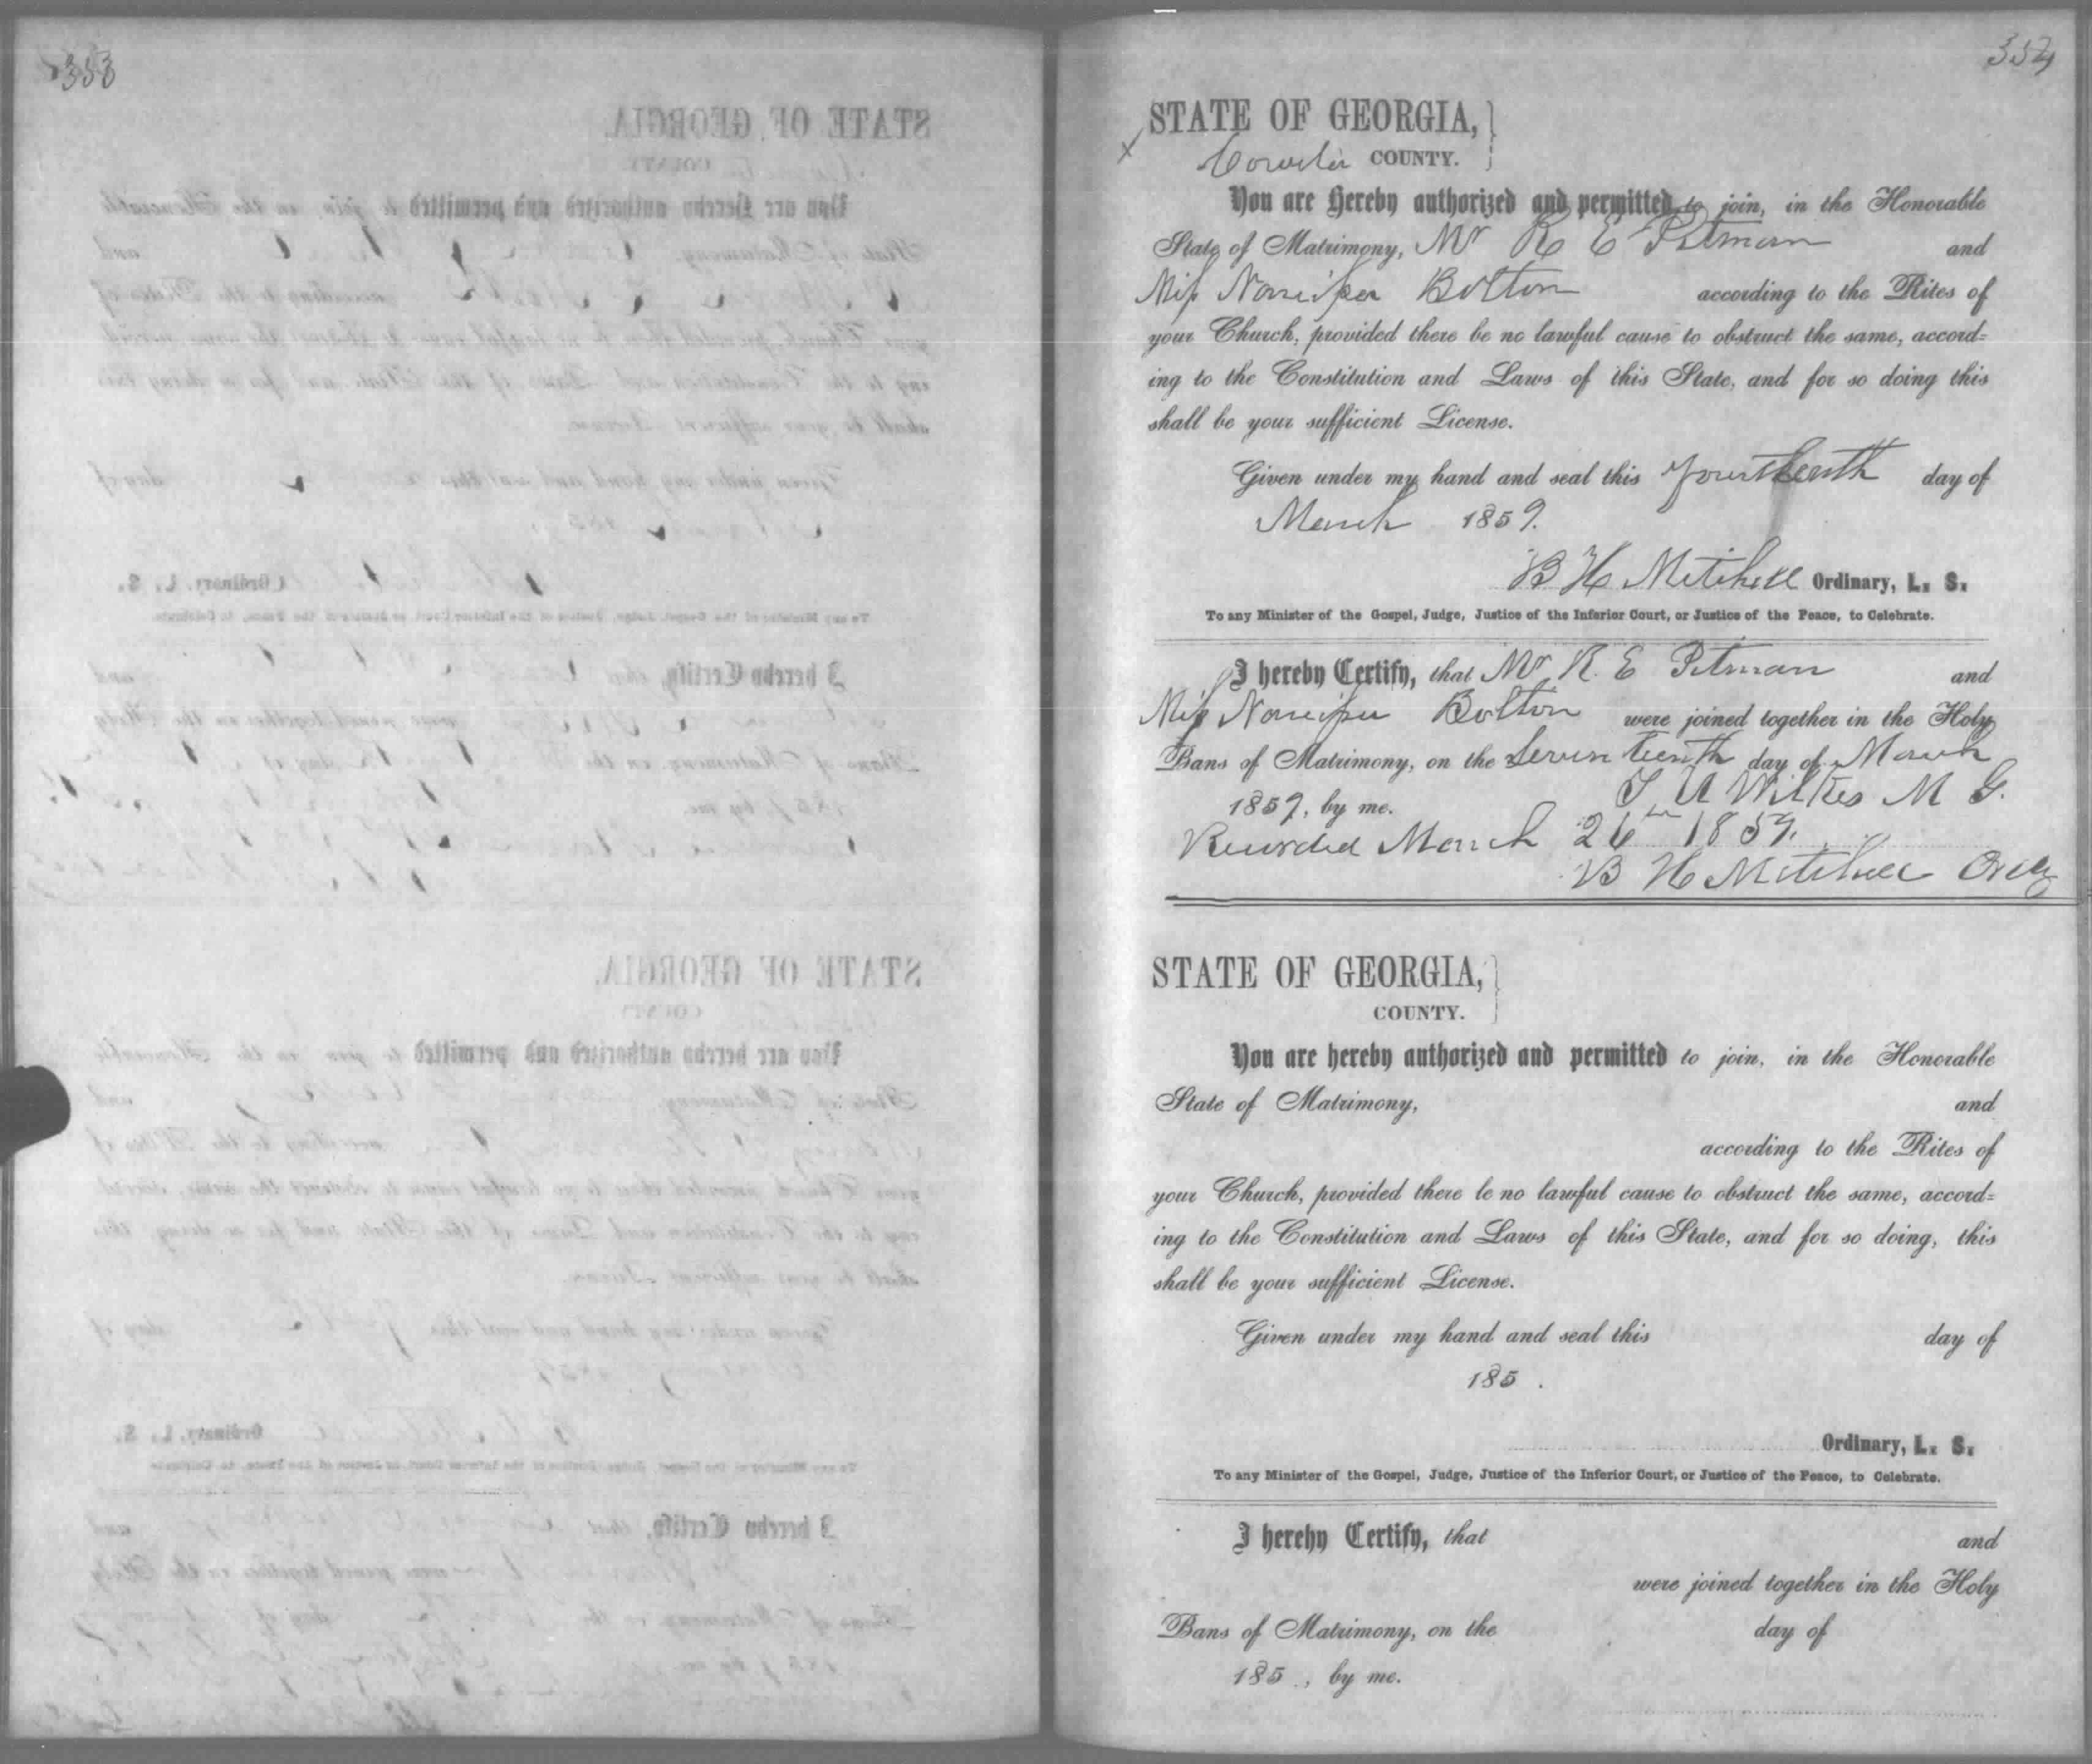 353
354
STATE OF GEORGIA,
Coweta COUNTY.
You are Hereby authorized and permitted to join, in the Honorable
State of Matrimony, Mr R E Pitman and
Miss Bolton according to the Rites of
your Church, provided there be no lawful cause to obstruct the same, accord=
ing to the Constitution and Laws of this State, and for so doing this
shall be your sufficient License.
Given under my hand and seal this fourteenth day of
March 1859.
B H Mitchell Ordinary, L. S.
To any Minister of the Gospel, Judge, Justice of the Inferior Court, or Justice of the Peace, to Celebrate.
I hereby Certify, that Mr R. E Pitman and
Miss Bolton were joined together in the Holy
Bans of Matrimony, on the Seventeenth day of March
1859, by me. Wilkes M G.
Recorded March 26th 1859.
B H Mitchell Ordy
STATE OF GEORGIA,
COUNTY.
You are hereby authorized and permitted to join, in the Honorable
State of Matrimony, and
according to the Rites of
your Church, provided there be no lawful cause to obstruct the same, accord=
ing to the Constitution and Laws of this State, and for so doing, this
shall be your sufficient License.
Given under my hand and seal this day of
185 .
Ordinary, L. S.
To any Minister of the Gospel, Judge, Justice of the Inferior Court, or Justice of the Peace, to Celebrate.
I hereby Certify, that and
were joined together in the Holy
Bans of Matrimony, on the day of
185 , by me.